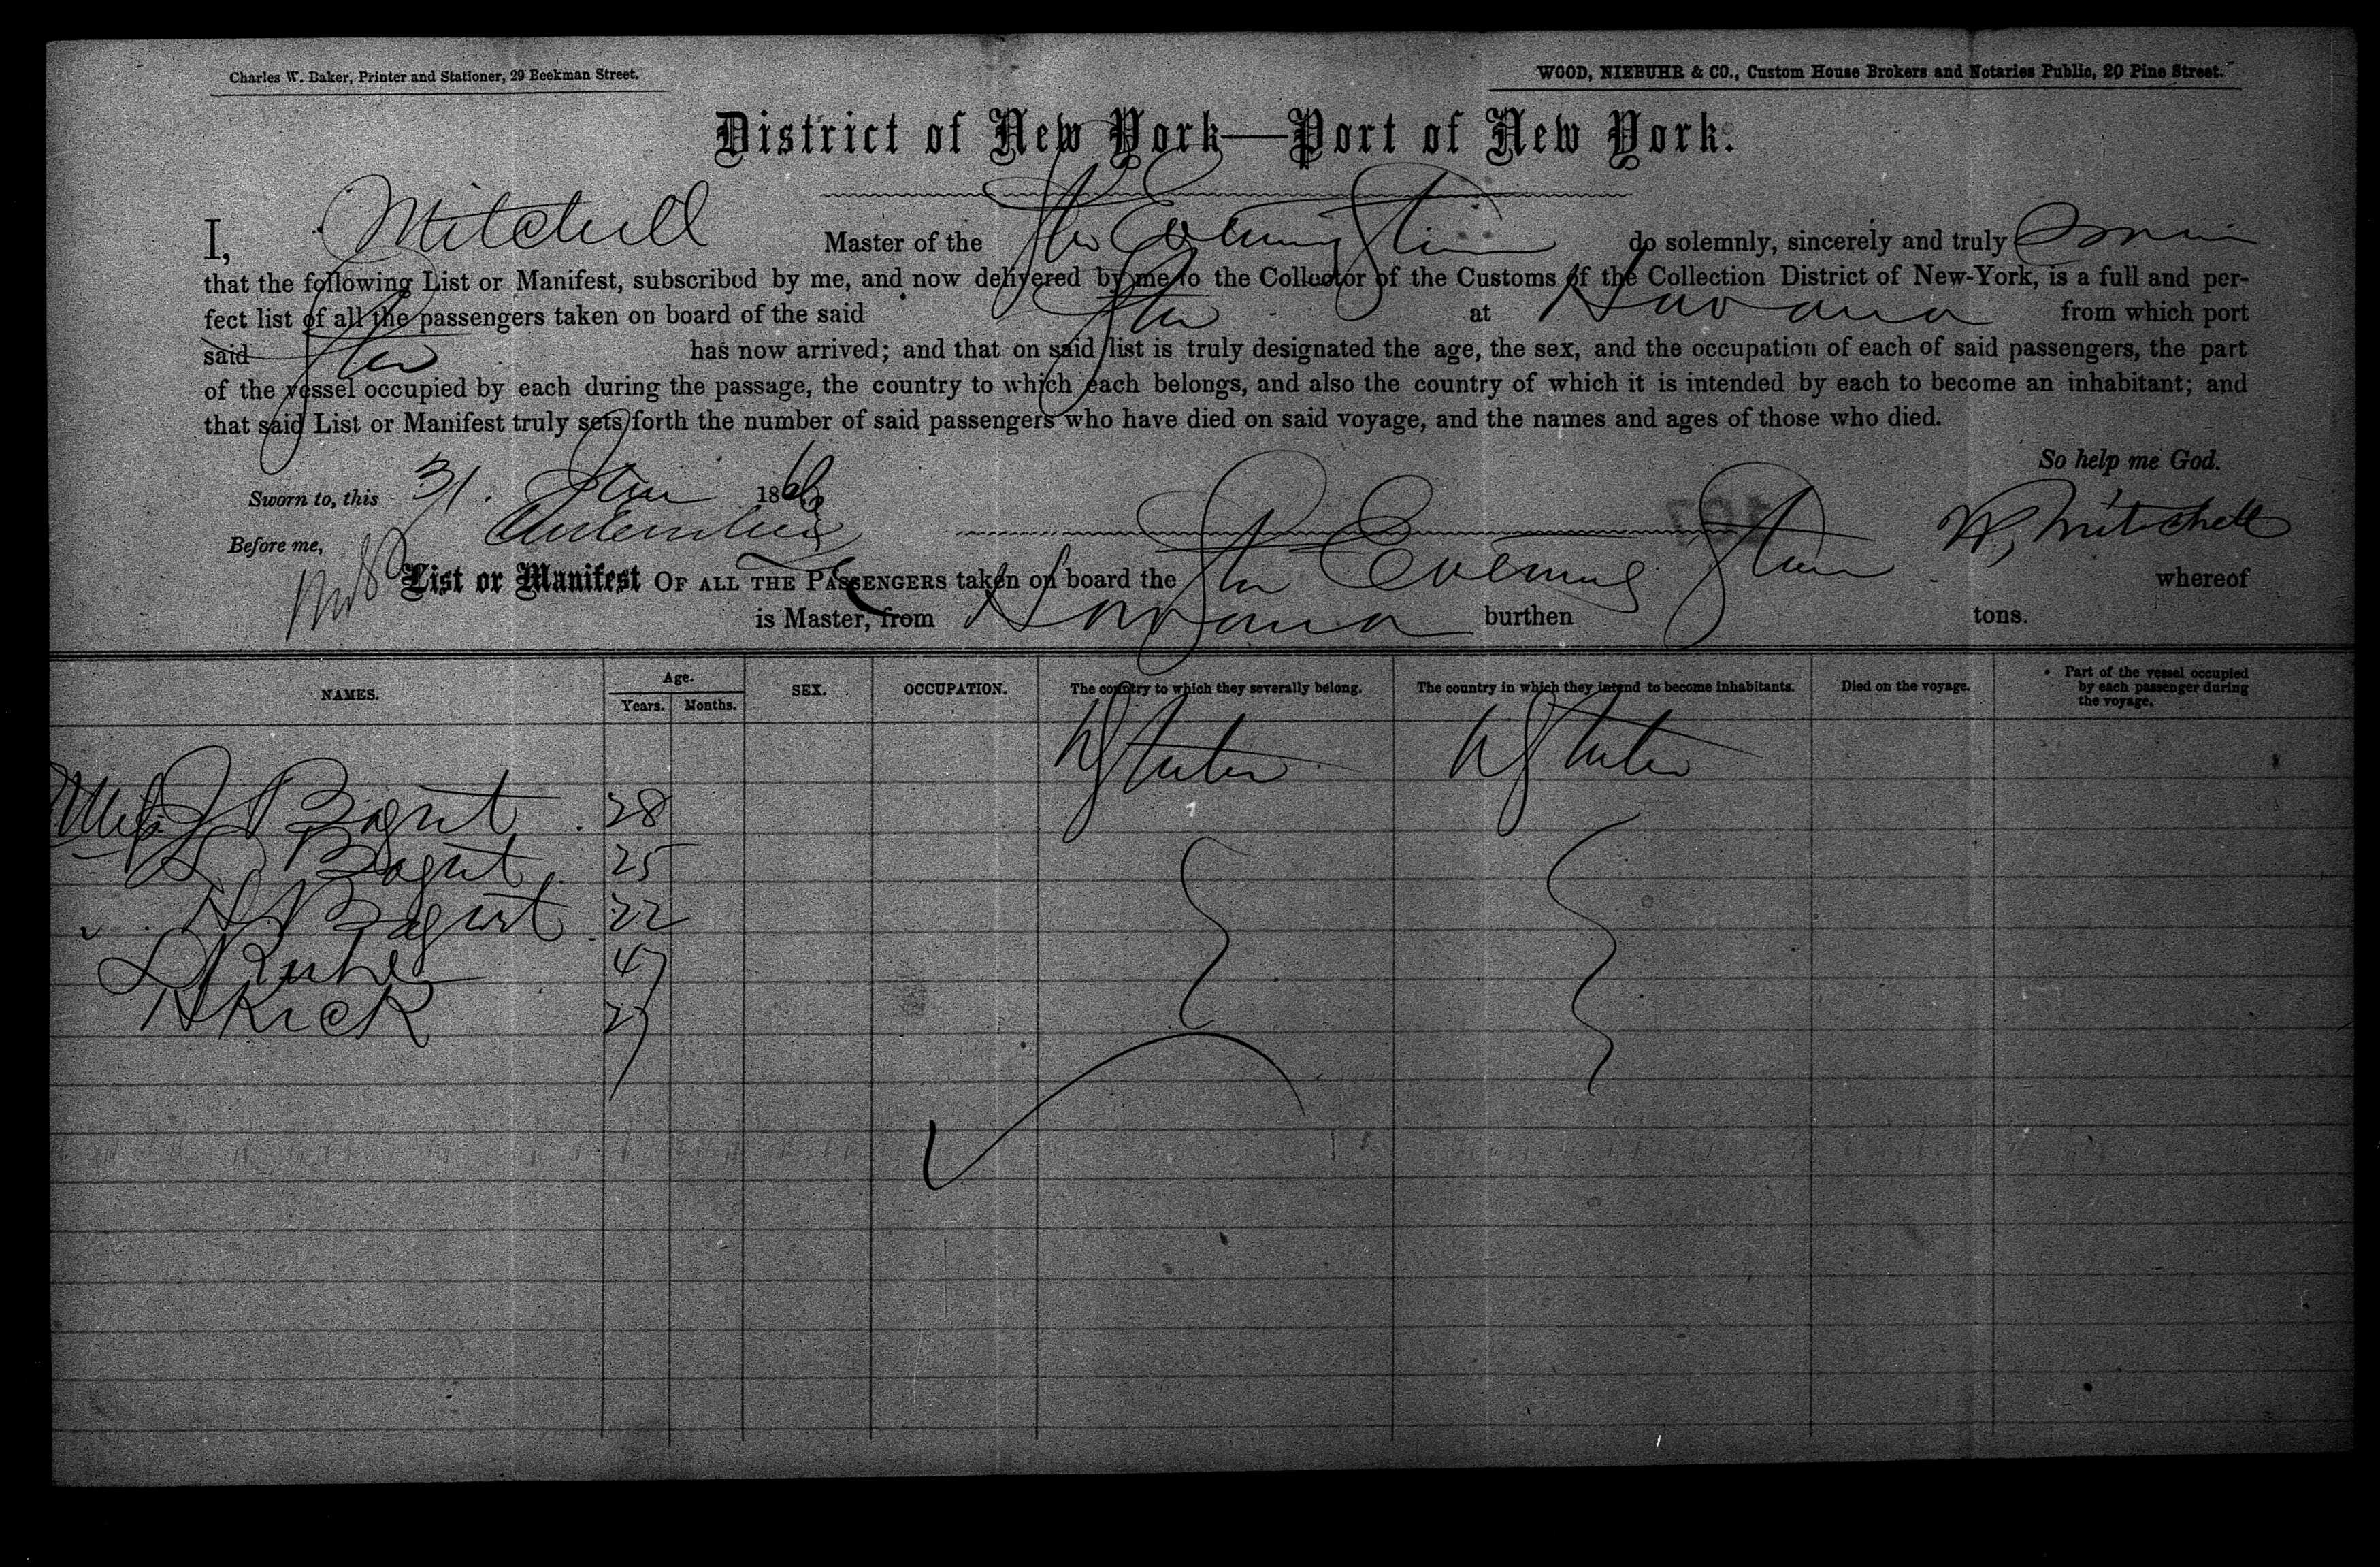 Charles W. Baker, Printer and Stationer, 29 Beekman Street.
WOOD, NIEBUHR & CO., Custom House Brokers and Notaries Public, 20 Pine Street.
District of New York—Port of New York.
I, Mitchell Master of the Str Evening Star do solemnly, sincerely and truly
that the following List or Manifest, subscribed by me, and now delivered by me to the Collector of the Customs of the Collection District of New-York, is a full and per-
fect list of all the passengers taken on board of the said Str at Havana from which port
said Str has now arrived; and that on said list is truly designated the age, the sex, and the occupation of each of said passengers, the part
of the vessel occupied by each during the passage, the country to which each belongs, and also the country of which it is intended by each to become an inhabitant; and
that said List or Manifest truly sets forth the number of said passengers who have died on said voyage, and the names and ages of those who died.
So help me God.
Sworn to, this 31. 1866
Before me,
W, Mitchell
List or Manifest OF ALL THE PASSENGERS taken on board the Str Evening Star whereof
is Master, from Havana burthen tons.
NAMES.
Age.
Years.
Months.
SEX.
OCCUPATION.
The country to which they severally belong.
The country in which they intend to become inhabitants.
Died on the voyage.
Part of the vessel occupied
by each passenger during
the voyage.
U States U States
28
25
H 22
47
H Rick 27